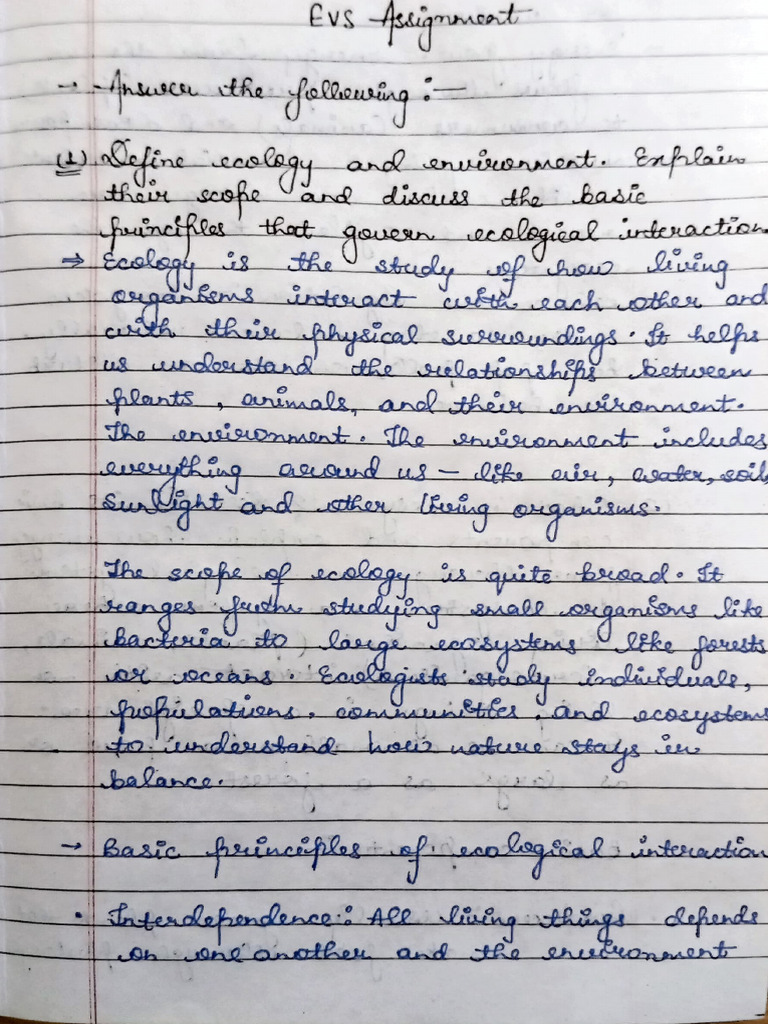 EVS Assignment
→ Answer the following :—
(1) Define ecology and environment. Explain
their scope and discuss the basic
principles that govern ecological interaction
⇒ Ecology is the study of how living
organisms interact with each other and
with their physical surroundings. It helps
us understand the relationships between
plants, animals, and their environment.
The environment. The environment includes
everything around us – like air, water, soil,
sunlight and other living organisms.
The scope of ecology is quite broad. It
ranges from studying small organisms like
bacteria to large ecosystems like forests
or oceans. Ecologists study individuals,
populations, communities, and ecosystems
to understand how nature stays in
balance.
→ Basic principles of ecological interaction
• Interdependence: All living things depends
on one another and the environment